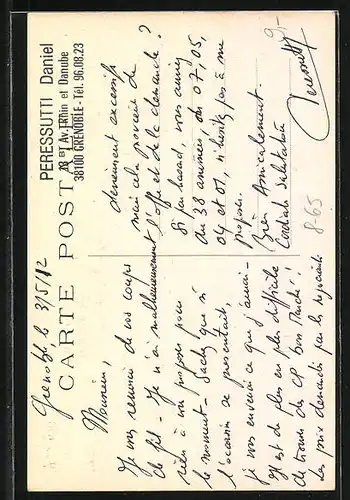 PERESSUTTI Daniel
Av. Rhin et Danube
38100 GRENOBLE - Tél. 96.08.23
CARTE POSTALE
Grenoble, le 3/5/82
Monsieur,
Je vous remercie de vos coups
de fil - Je n'ai malheureusement
rien à vous proposer pour
le moment - Sachez que si
l'occasion se présentait,
je vous enverrai ce que j'aurai -
Il est de plus en plus difficile
de trouver des CP bon Marché!
les prix demandés par les
deviennent excessifs
mais cela provient de
l'offre et de la demande?
Si par hasard, vous aviez
du 38 animées, du 07, 05,
04 et 01, n'hésitez pas à me
proposer.
Bien Amicalement.
Cordiale Salutation
Peressutti
8-65